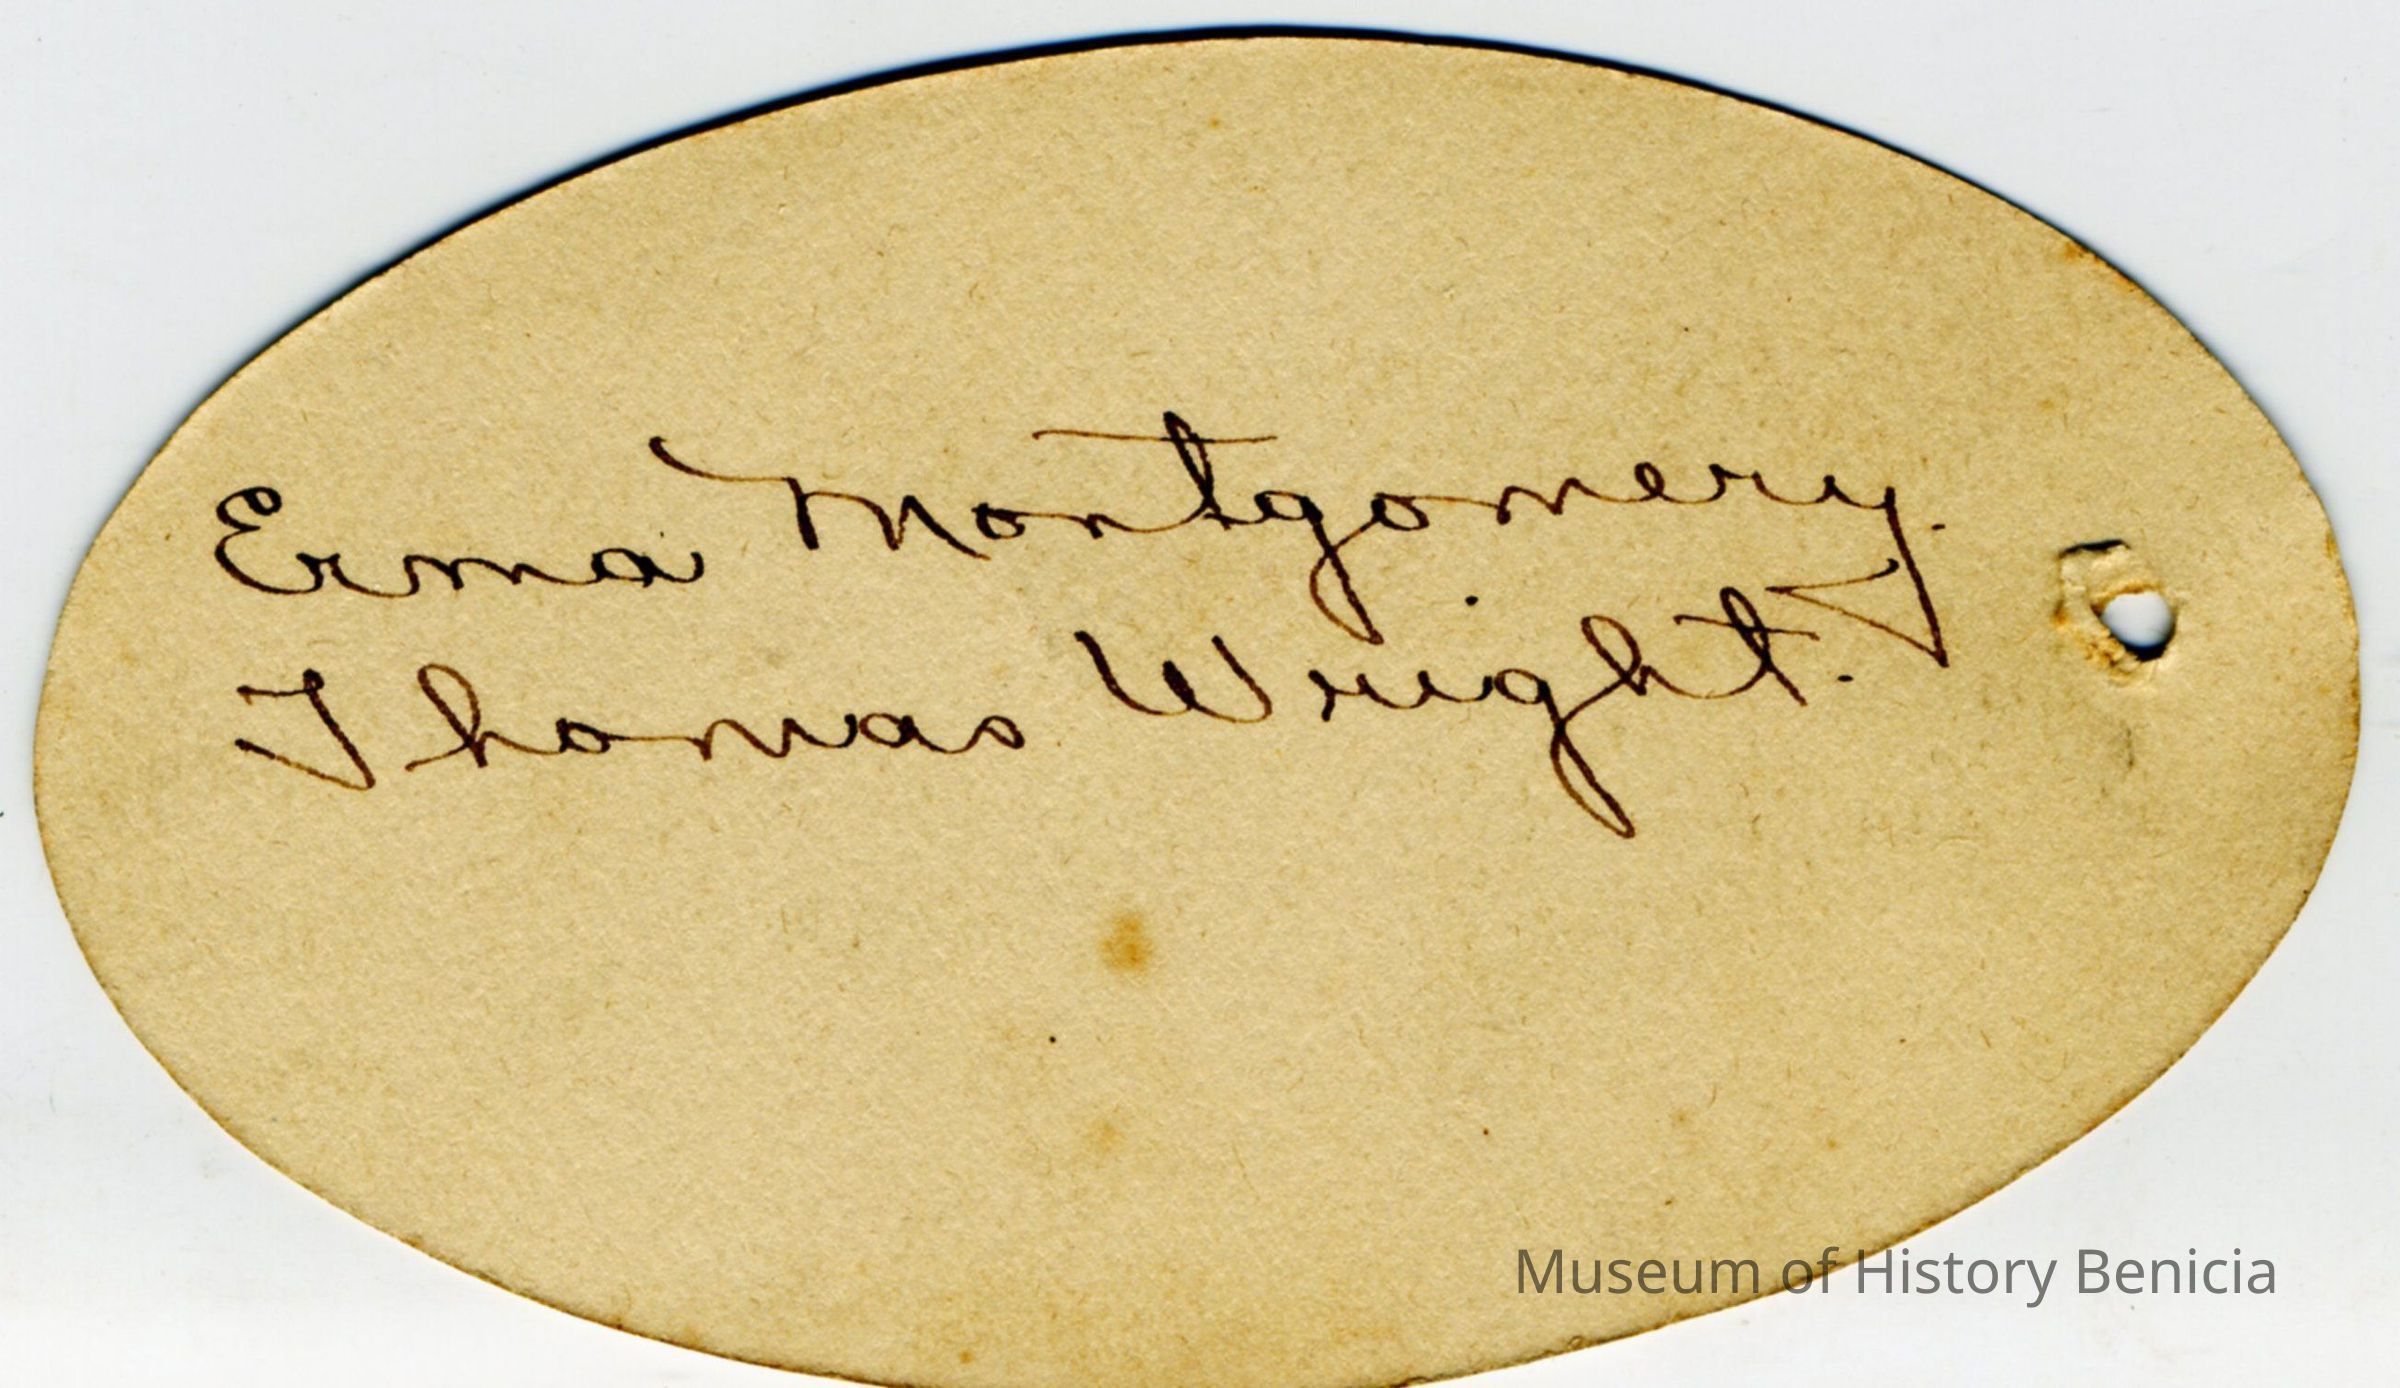 Erma Montgomery.
Thomas Wright.
Museum of History Benicia